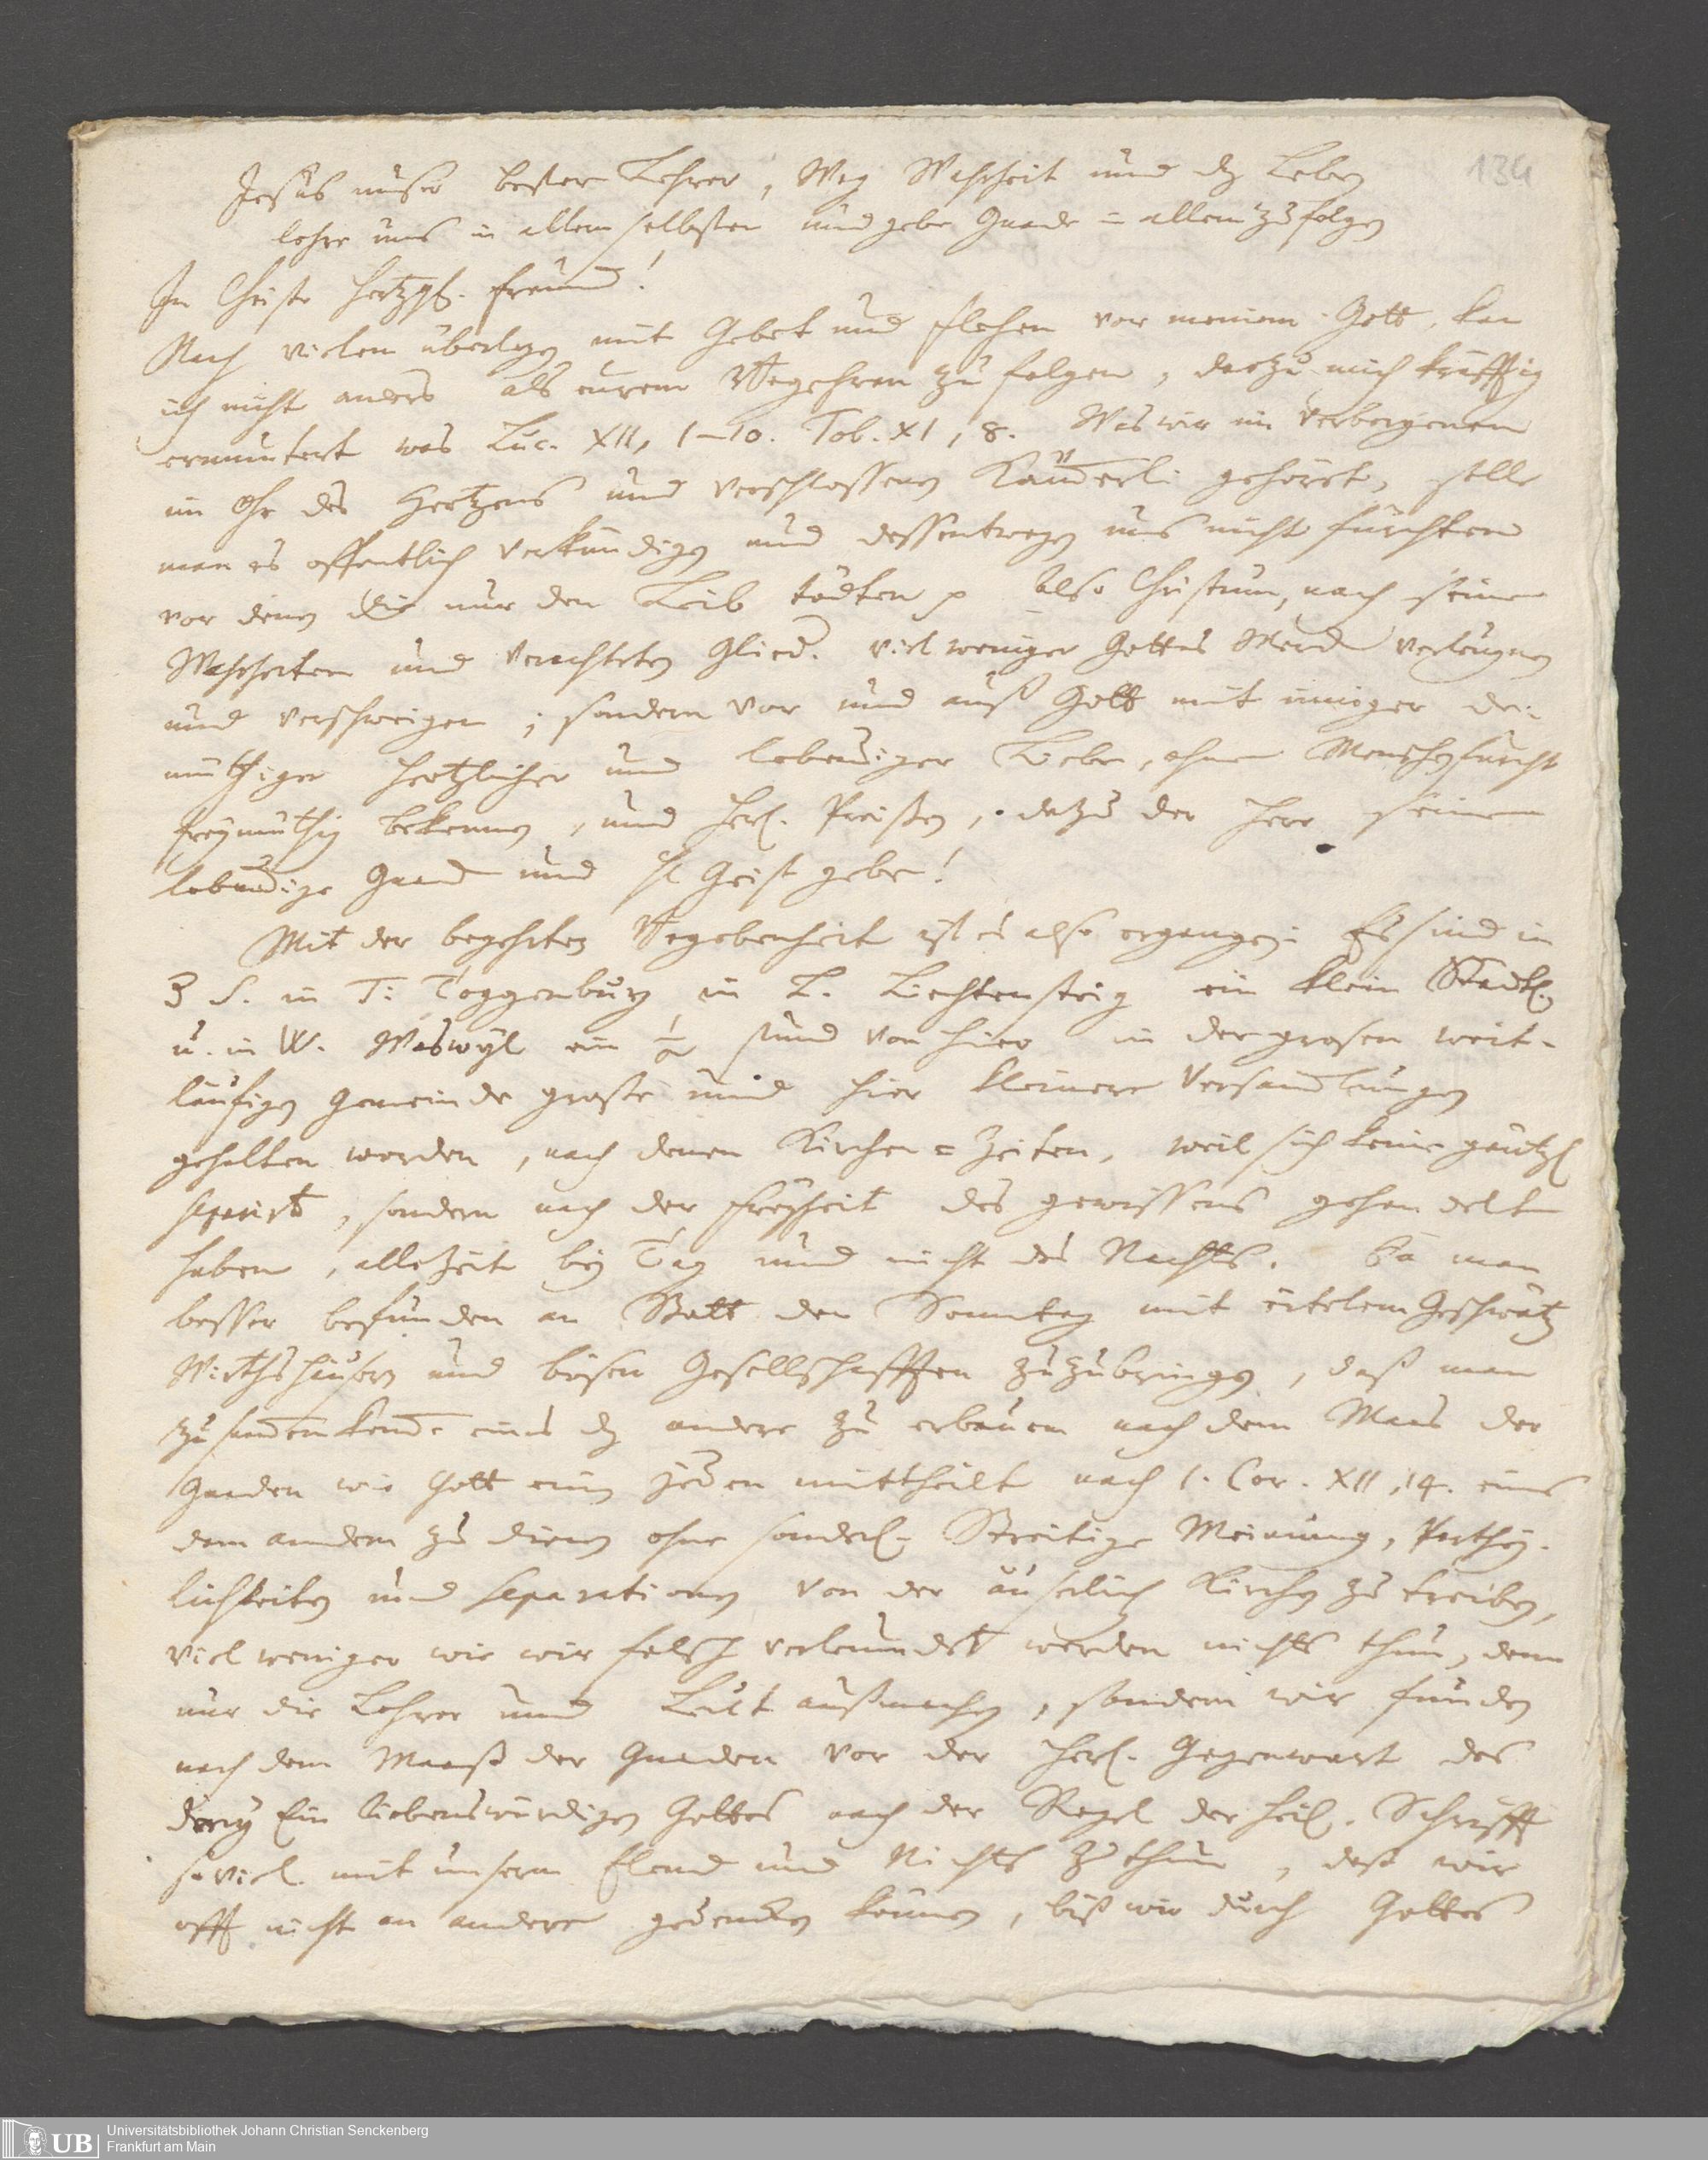 134
Jesus unser bester Lehrer, Weg Wahrheit und dz Leben
lehre uns in allem selbsten und gebe Gnade in allem zu folgen
In Christo hertzgel. Freund!
Nach vielem überlegen mit Gebet und flehen vor meinem Gott, kan
ich nicht anders als eurem Begehren zu folgen, darzu mich kräfftig
ermuntert was Luc. XII, 1–10. Tob. XI, 8. Was wir im Verborgenen
im Ohr des Hertzens und verschlossenen Kämerli gehöret, solle
man es offentlich verkündigen und dessentwegen uns nicht fürchten
vor denen die nur den Leib tödten p also Christum, nach seinen
Wahrheiten und verachteten Glied. viel weniger Gottes Werck verleugnen
und verschweigen; sondern vor und auß Gott mit inniger de-
müthiger hertzlicher und lebendiger Liebe, ohne Menschenfurcht
freymüthig bekennen, und herl. Preißen, darzu der Herr seinen
lebendige Gnad und hl Geist gebe!
Mit der begehrten Begebenheit ist es also ergangen: Es sind in
3 S. in T: Toggenburg in L. Liechtensteig ein klein Stadtl.
u. in W. Waswyl ein ½ stund von hier in der grosen weit-
läufigen Gemeinde groste und hier kleinere Versamlungen
gehalten worden, nach denen Kirchen=Zeiten, weil sich keine gäntzl
separirt, sondern nach der Freyheit des gewissens gehandelt
haben, allezeit bey Tag und nicht des Nachts. Da man
besser befunden an Statt den Sonntag mit eitelem Geschwätz
Wirthshäusern und bösen Gesellschafften zuzubringen, daß man
zusamenkome eines dz andere zu erbauen nach dem Maas der
Gnaden wie Gott eim jeden mittheilt nach 1. Cor. XII, 14. eins
dem andern zu dienen ohne sonderl. Streitige Meinung, Parthey-
lichkeiten und separationen von der äuserlich Kirchen zu treiben,
viel weniger wie wir falsch verleumdet werden nichts thun, denn
nur die Lehrer und Leut außmachen, sondern wir funden
nach dem Maaß der Gnaden vor der herl. Gegenwart des
drey Ein liebenswürdigen Gottes nach der Regel der heil. Schrifft
so viel mit unserm Elend und Nichts zu thun, daß wir
offt nicht an andere gedencken können, biß wir durch Gottes
UB
Universitätsbibliothek Johann Christian Senckenberg
Frankfurt am Main